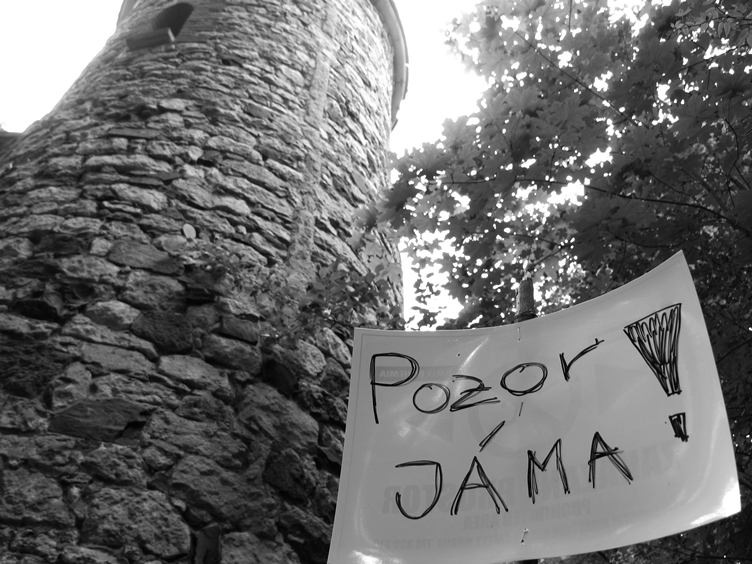 Pozor !
JÁMA